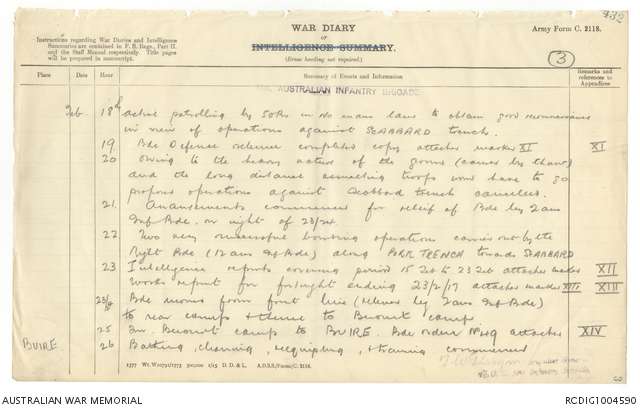 432
WAR DIARY
or
INTELLIGENCE SUMMARY.
(Erase heading not required.)
Army Form C. 2118.
Instructions regarding War Diaries and Intelligence
Summaries are contained in F. S. Regs., Part II.
and the Staff Manual respectively. Title pages
will be prepared in manuscript.
3
Place Date Hour Summary of Events and Information Remarks and references to Appendices
AUSTRALIAN INFANTRY BRIGADE
Feb 18th active patrolling by 50Bn in no mans land to obtain good reconnaissance
in view of operations against SCABBARD trench.
19 Bde Defence scheme completed copy attached marked XI XI
20 Owing to the heavy nature of the ground (caused by thaw)
and the long distance assaulting troops would have to go
proposed operations against Scabbard trench cancelled.
21. Arrangements commenced for relief of Bde by 2 Aus
Inf Bde. on night of 23/24.
22 Two very successful bombing operations carried out by the
Right Bde (12 Aus Inf Bde) along PORK TRENCH towards SCABBARD
23 Intelligence reports covering period 15 Feb to 23 Feb attached marked XII
Works report for fortnight ending 23/2/17 attached marked XIII XIII
23/24 Bde moved from front line (relieved by 2 Aus Inf Bde)
to rear camps & thence to Becourt camp.
25 Bde order No 49 attached XIV
Becourt camp to BUIRE.
BUIRE 26 Bathing, cleaning, reequipping, & training commenced
1577 Wt. W10791/1773 500,000 1/15 D. D. & L. A.D.S.S./Forms/C. 2118.
AUSTRALIAN WAR MEMORIAL
RCDIG1004590